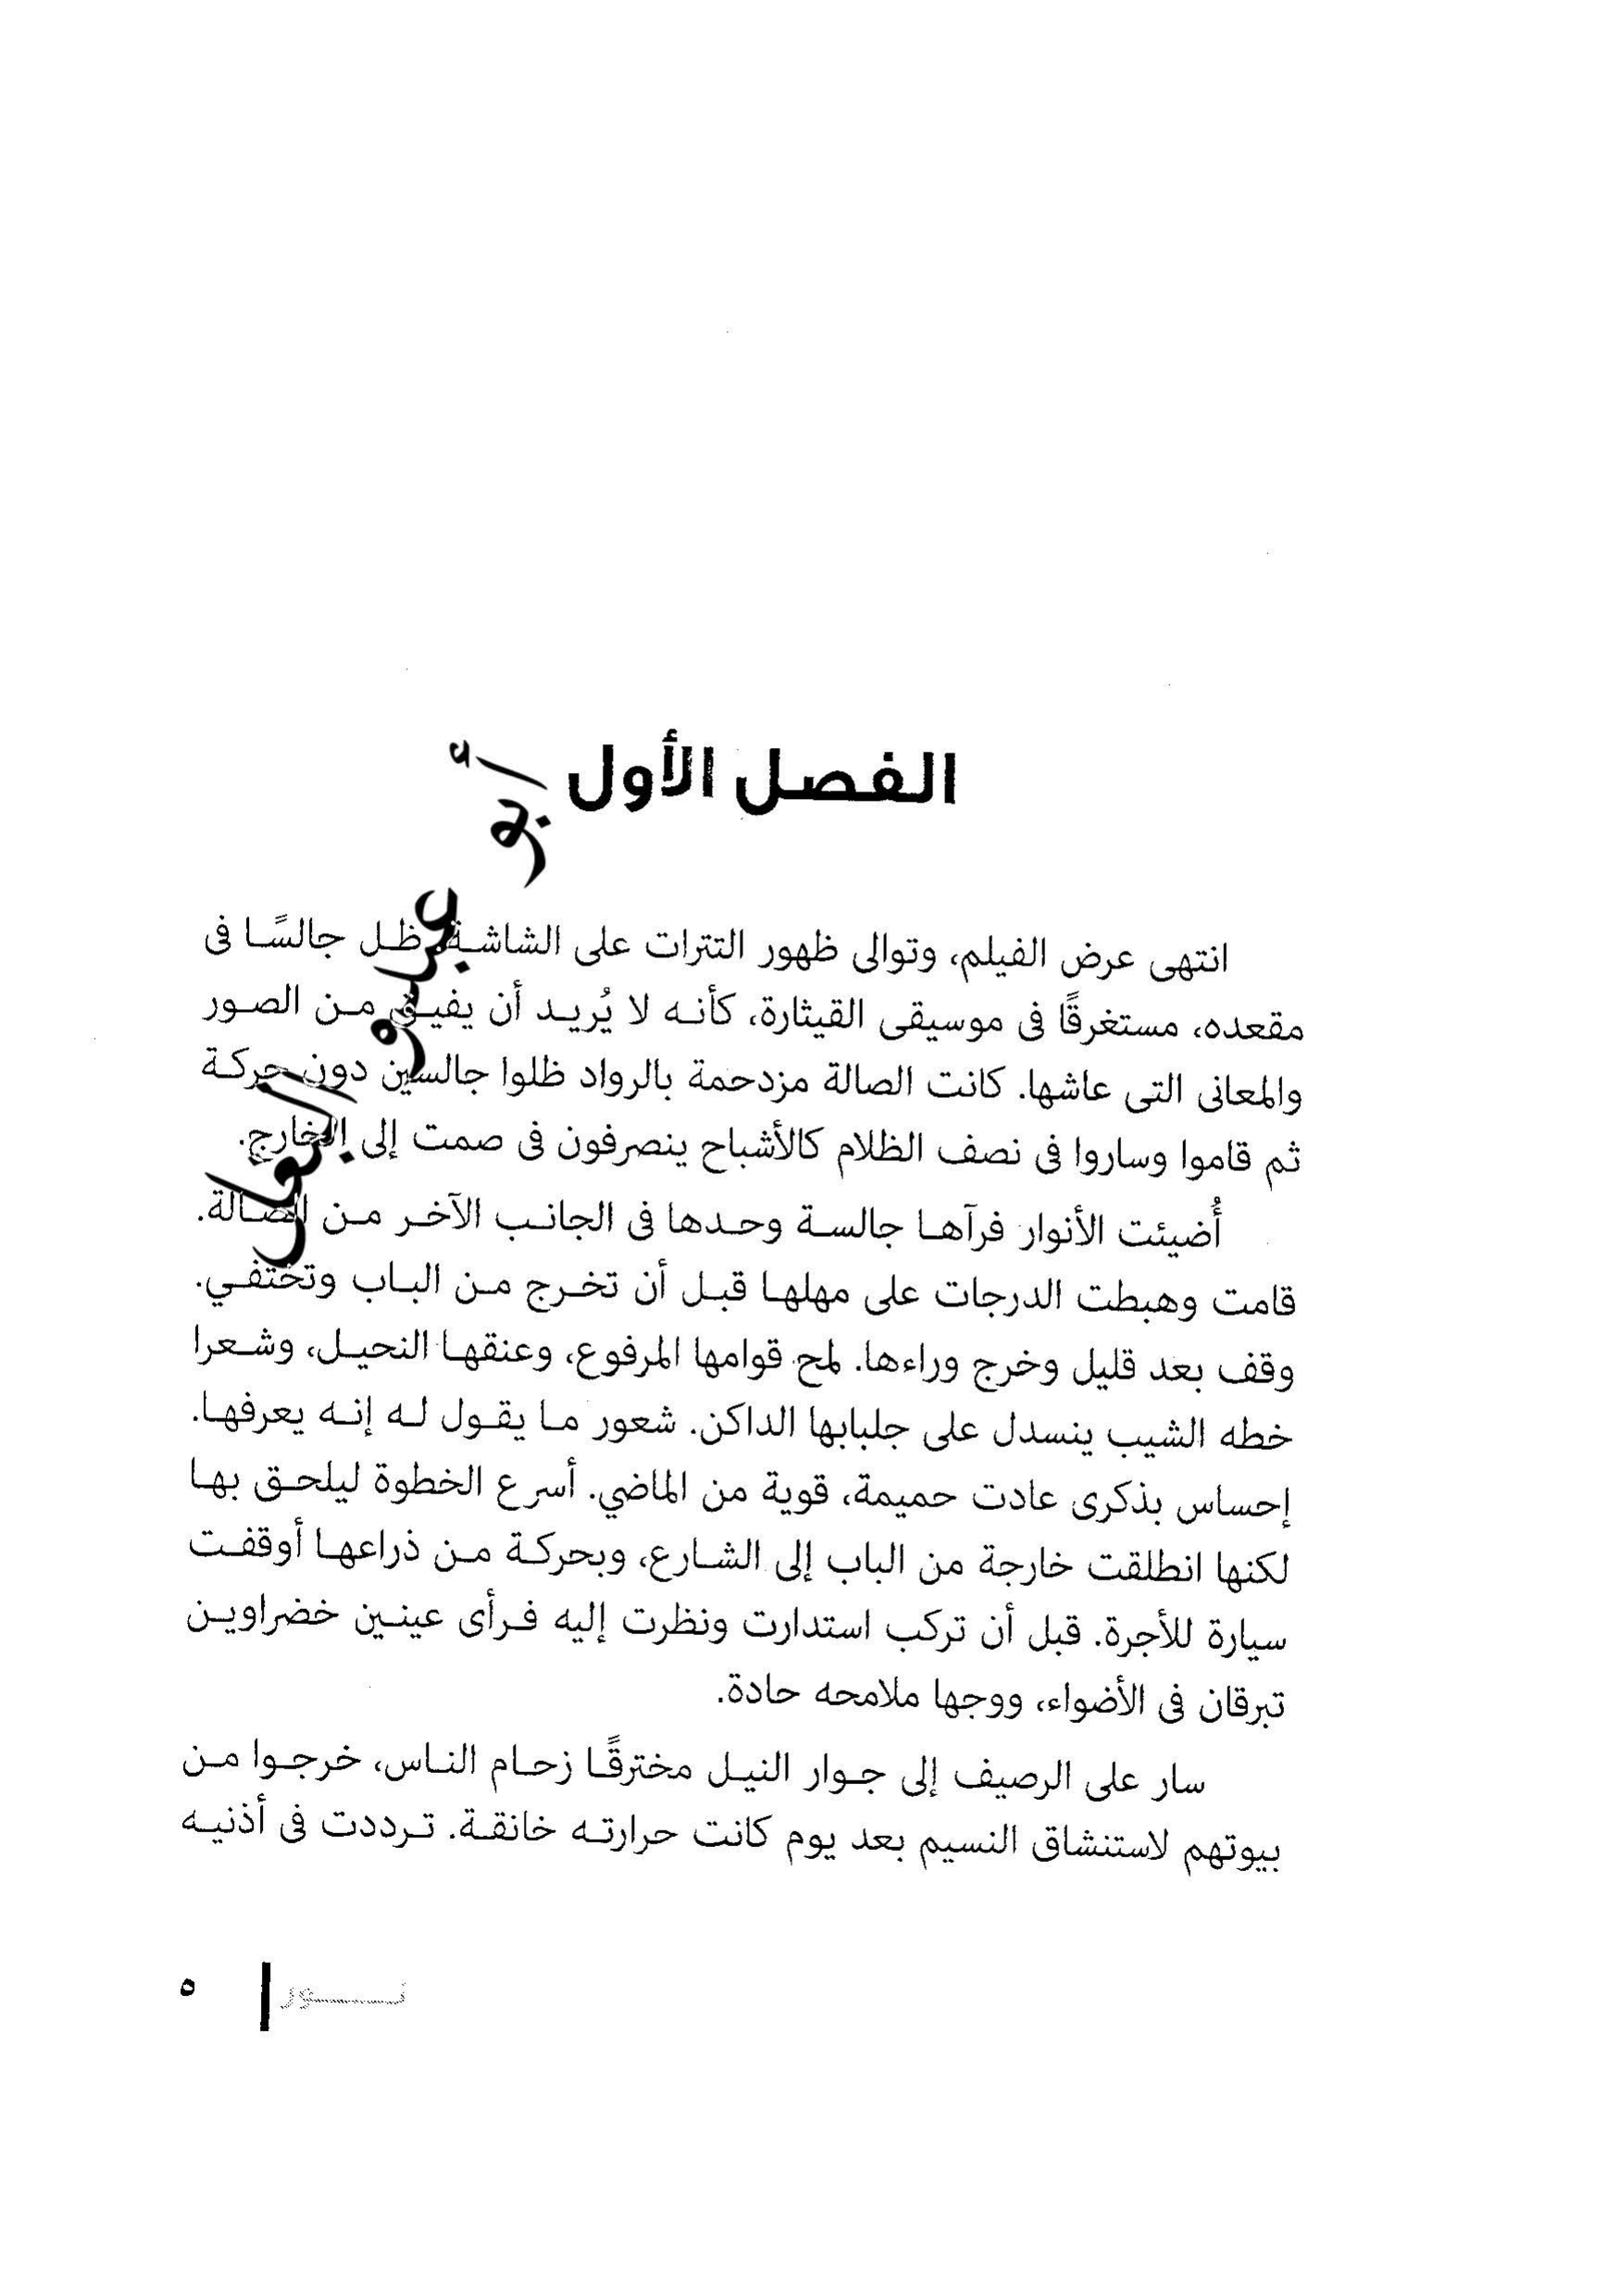 الفصل الأول
أبو عبدو البغل
انتهى عرض الفيلم، وتوالى ظهور التترات على الشاشة، ظل جالسًا فى
مقعده، مستغرقًا فى موسيقى القيثارة، كأنه لا يُريد أن يفيق من الصور
والمعانى التى عاشها. كانت الصالة مزدحمة بالرواد ظلوا جالسين دون حركة
ثم قاموا وساروا فى نصف الظلام كالأشباح ينصرفون فى صمت إلى الخارج.
أُضيئت الأنوار فرآها جالسة وحدها فى الجانب الآخر من الصالة.
قامت وهبطت الدرجات على مهلها قبل أن تخرج من الباب وتختفي.
وقف بعد قليل وخرج وراءها. لمح قوامها المرفوع، وعنقها النحيل، وشعرا
خطه الشيب ينسدل على جلبابها الداكن. شعور ما يقول له إنه يعرفها.
إحساس بذكرى عادت حميمة، قوية من الماضي. أسرع الخطوة ليلحق بها
لكنها انطلقت خارجة من الباب إلى الشارع، وبحركة من ذراعها أوقفت
سيارة للأجرة. قبل أن تركب استدارت ونظرت إليه فرأى عينين خضراوين
تبرقان فى الأضواء، ووجها ملامحه حادة.
سار على الرصيف إلى جوار النيل مخترقًا زحام الناس، خرجوا من
بيوتهم لاستنشاق النسيم بعد يوم كانت حرارته خانقة. ترددت فى أذنيه
نور ٥